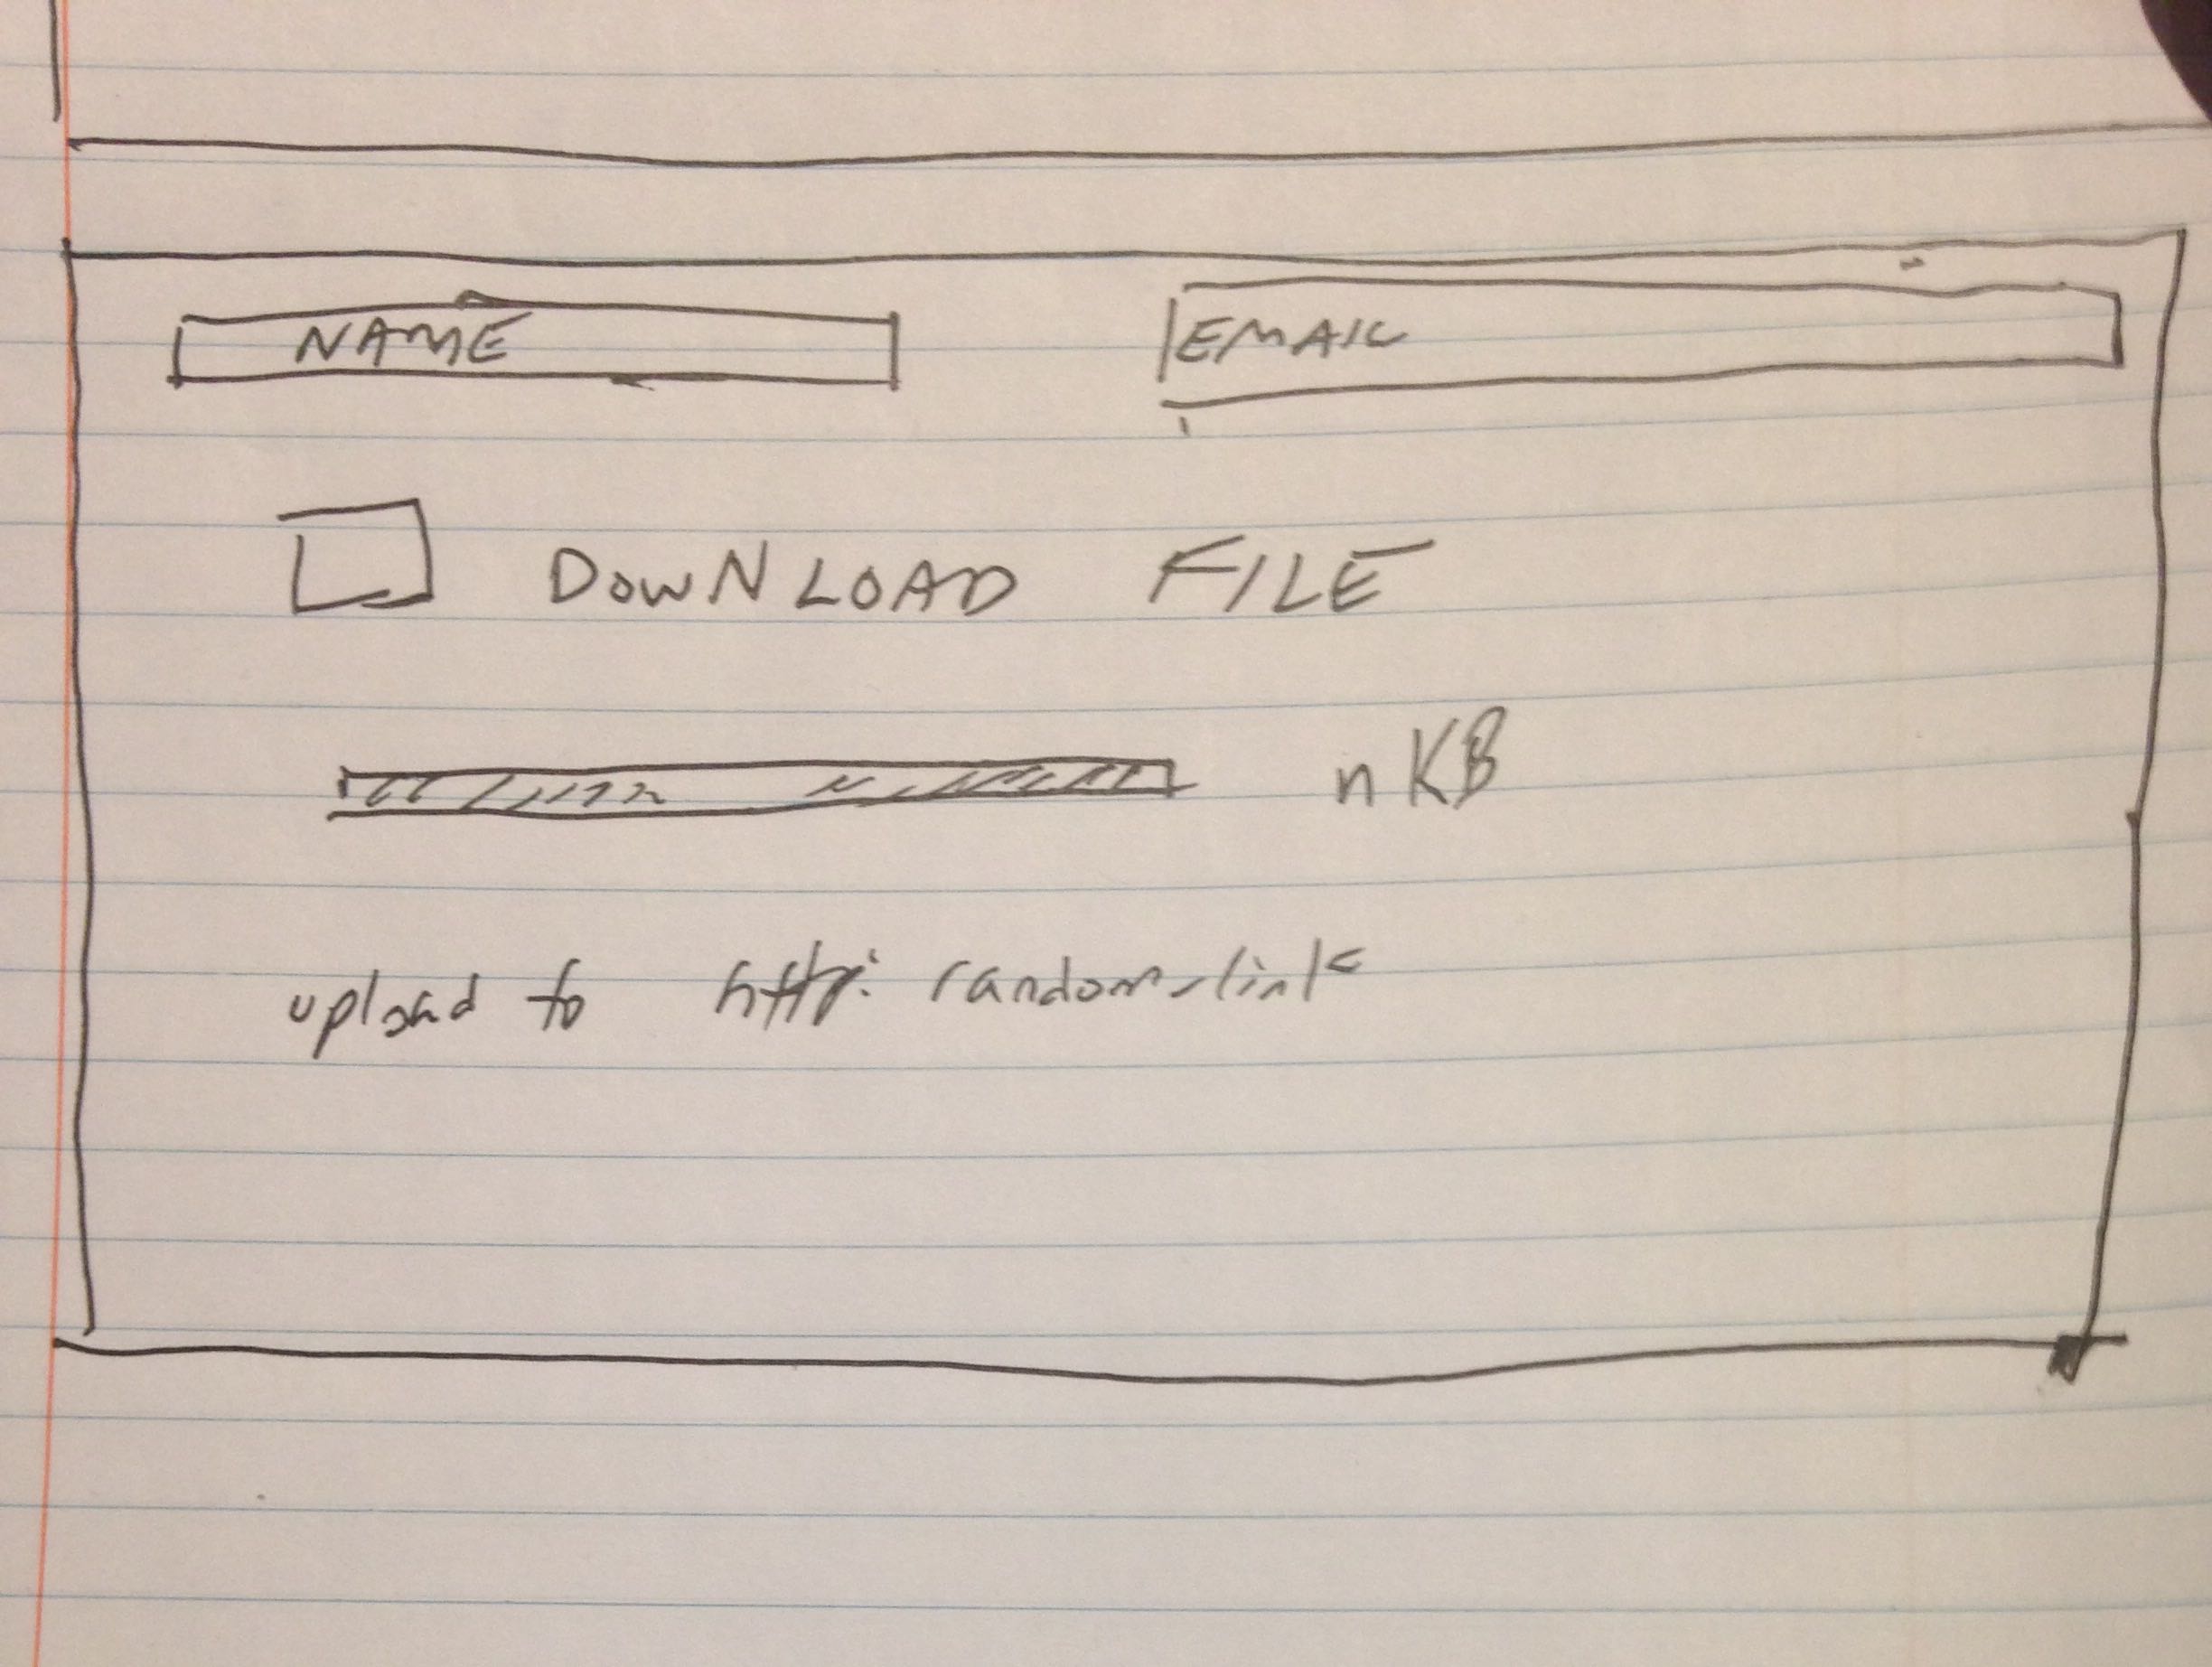 NAME EMAIL
DOWNLOAD FILE
nKB
upload to http: random-link